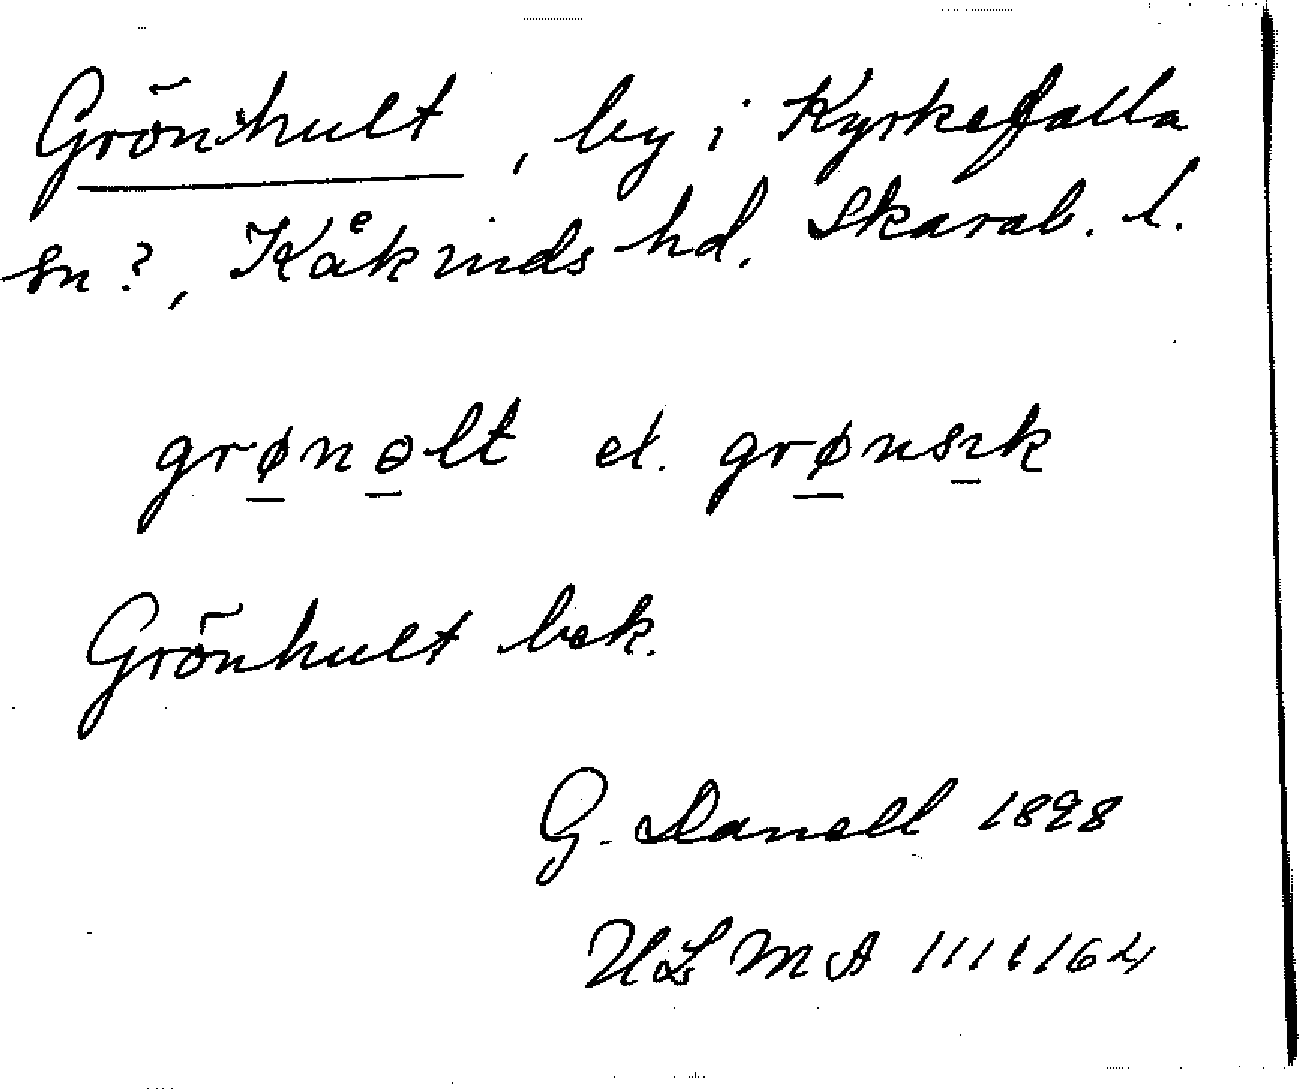 Grönhult, by i Kyrkefalla
sn?, Kåkinds hd, Skarab. l.
grønɵlt el. grønsɩk
Grönhult bek.
G. Danell 1898
ULMA 111:164